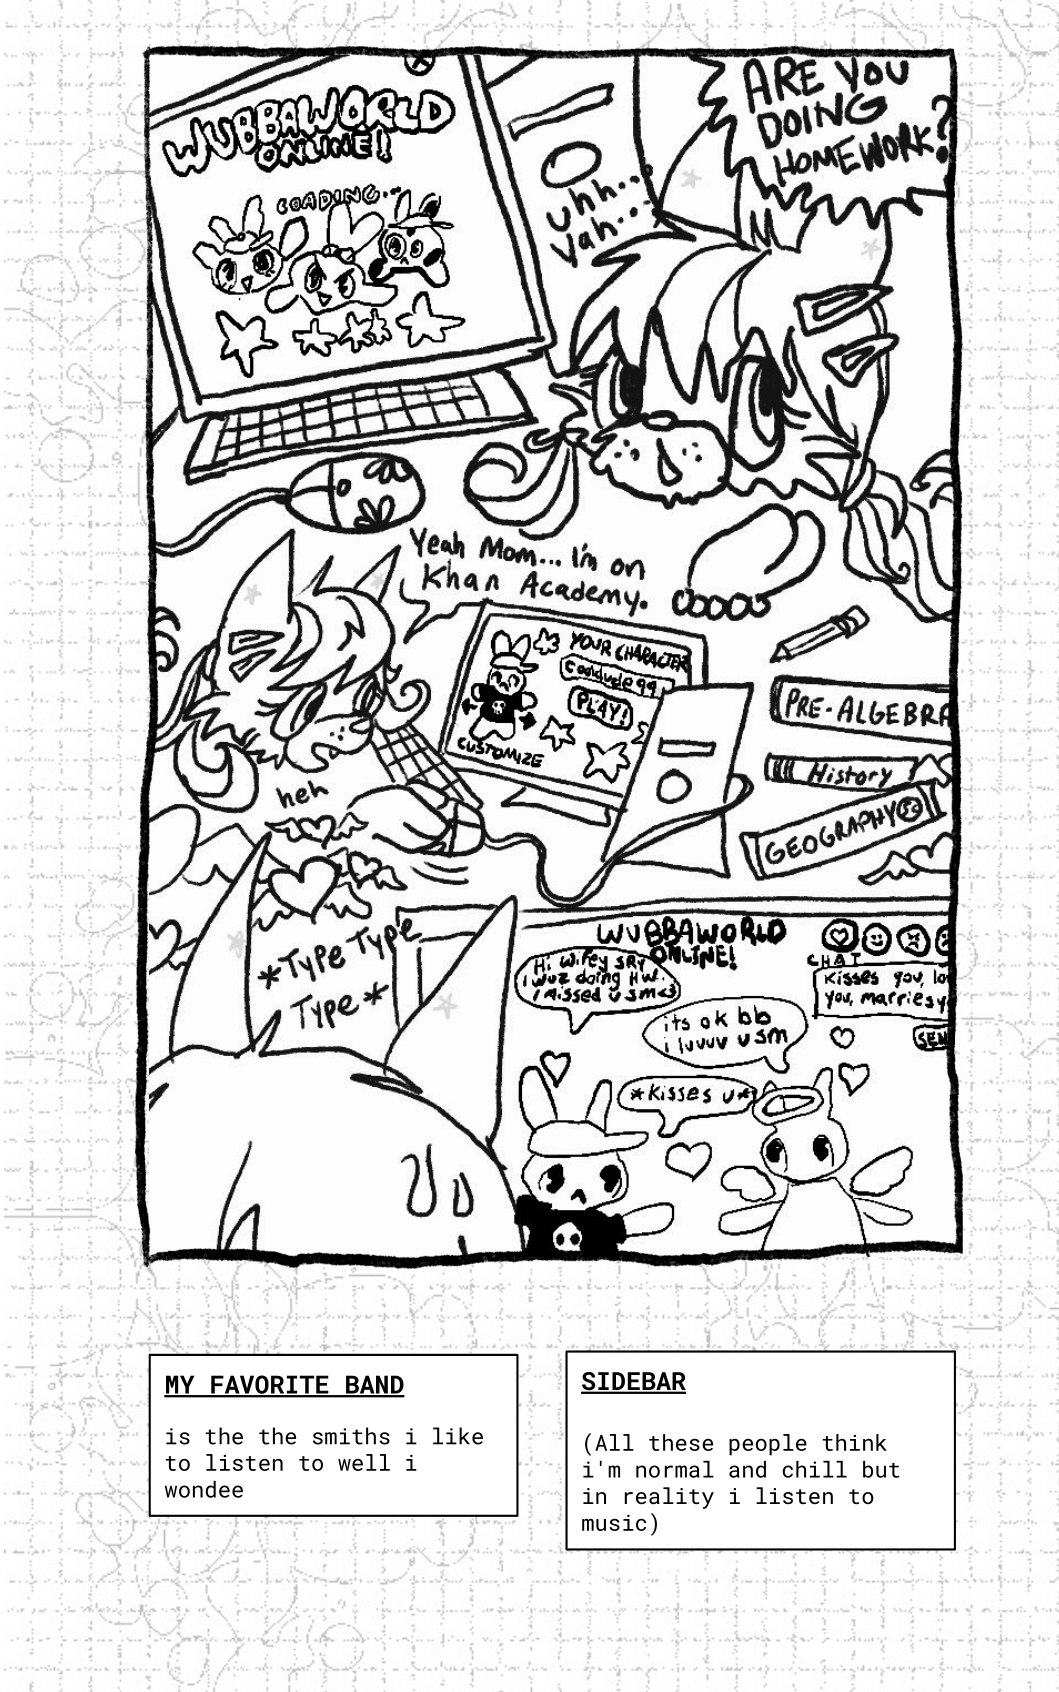 WUBBAWORLD
ONLINE!
LOADING...
ARE YOU
DOING
HOMEWORK?
uhh...
yah...
Yeah Mom... I'm on
Khan Academy.
YOUR CHARACTER
cooldude99
PLAY!
CUSTOMIZE
PRE-ALGEBRA
History
GEOGRAPHY
heh
*Type Type
Type*
WUBBAWORLD
ONLINE!
Hi wifey sry
i wuz doing H.W.
i missed u sm<3
CHAT
Kisses you, lo
you, marries y
SEN
its ok bb
i luvvv u sm
*kisses u*
MY FAVORITE BAND
is the the smiths i like
to listen to well i
wondee
SIDEBAR
(All these people think
i'm normal and chill but
in reality i listen to
music)